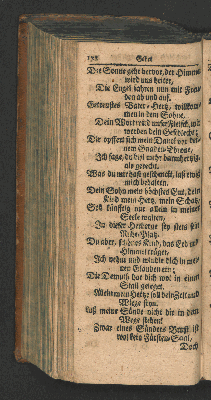 Gebet
Die Sonne geht hervor, der Himmel
wird uns heiter,
Die Engel fahren nun mit Freu-
den ab und auf.
Getreustes Vater-Hertz, willkom-
men in dem Sohne,
Dein Wort wird unser Fleisch, und
werden dein Geschlecht;
Die opffert sich mein Danck vor dei-
nem Gnaden-Throne,
Ich sage, du bist mehr barmhertzig,
als gerecht.
Was du mir hast geschenckt, laß ewig
mich behalten,
Dein Sohn mein höchstes Gut, dein
Kind mein Hertz, mein Schatz,
Geh künfftig nur allein in meiner
Seele walten,
In dieser Herberge sey stets sein
Ruhe-Platz.
Du aber, schönes Kind, das Erd und
Himmel träget,
Ich nehm und windle dich in mei-
nen Glauben ein;
Die Demuth hat dich wol in einen
Stall geleget,
Allein mein Hertze soll dein Zelt und
Wiege seyn.
Laß meine Sünde nicht dir in dem
Wege stehen!
Zwar eines Sünders Brust ist
kein Fürsten-Saal,
Doch